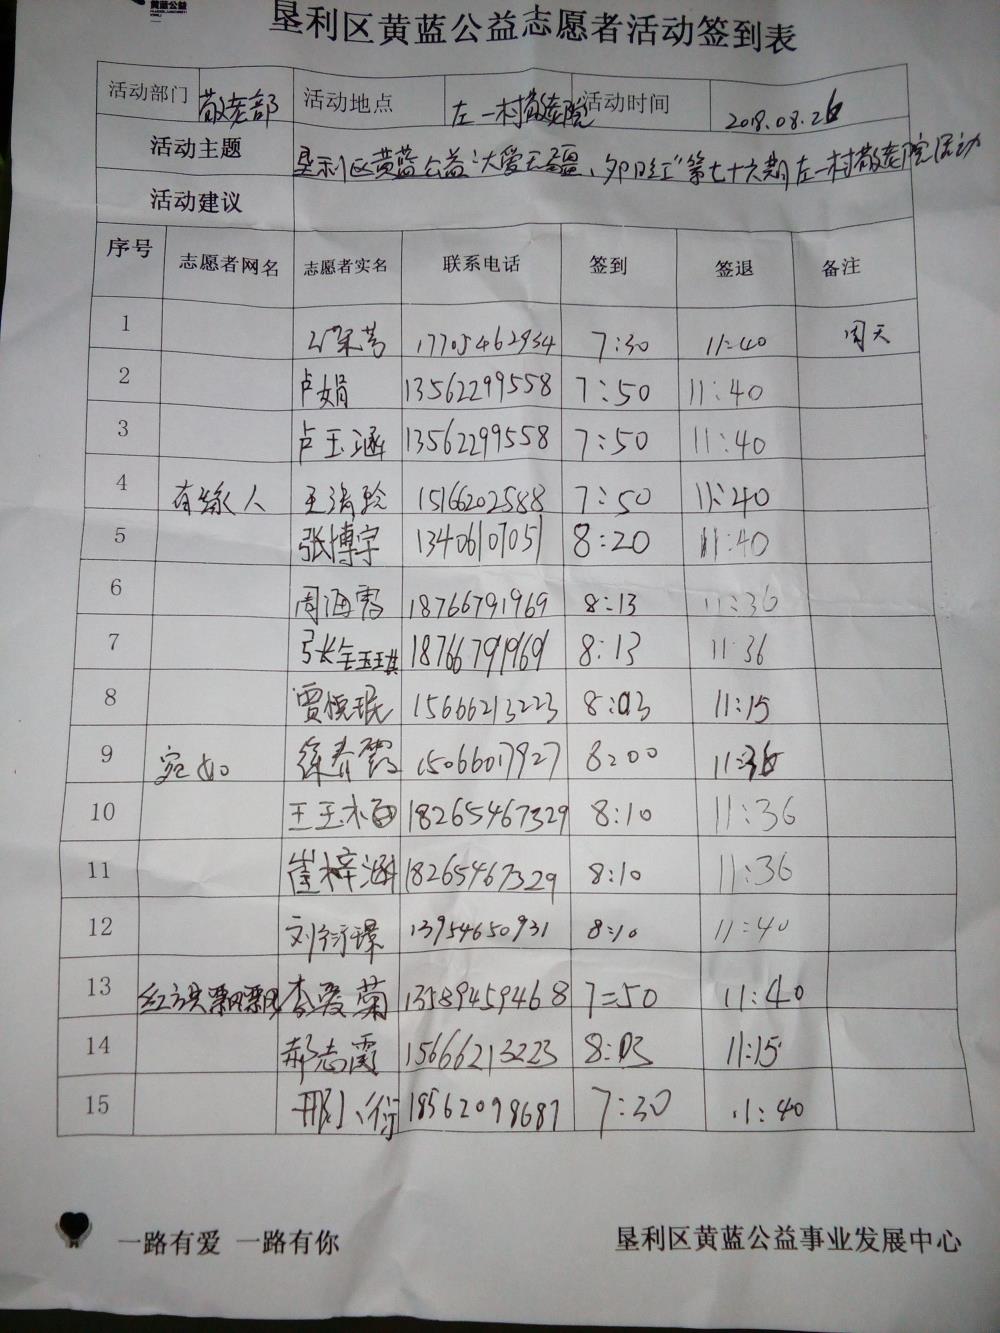 黄蓝公益
垦利区黄蓝公益志愿者活动签到表
活动部门 敬老部 活动地点 左一村敬老院 活动时间 2018.08.26
活动主题 垦利区黄蓝公益“大爱无疆、夕阳红”第七十六期左一村敬老院活动
活动建议
序号 志愿者网名 志愿者实名 联系电话 签到 签退 备注
1 17705462934 7:30 11:40 周天
2 卢娟 13562299558 7:50 11:40
3 卢玉涵 13562299558 7:50 11:40
4 有缘人 王清玲 15166202588 7:50 11:40
5 张博宇 13406107051 8:20 11:40
6 周海霞 18766791969 8:13 11:36
7 张钰琪 18766791969 8:13 11:36
8 贾悦珉 15666213223 8:03 11:15
9 宛如 徐春霞 15066017927 8:00 11:36
10 王玉 18265467329 8:10 11:36
11 崔梓涵 18265467329 8:10 11:36
12 刘衍璟 13954650931 8:10 11:40
13 红旗飘飘 李爱菊 13589459468 7:50 11:40
14 郝志霞 15666213223 8:03 11:15
15 邢小衍 18562098687 7:30 11:40
一路有爱 一路有你 垦利区黄蓝公益事业发展中心